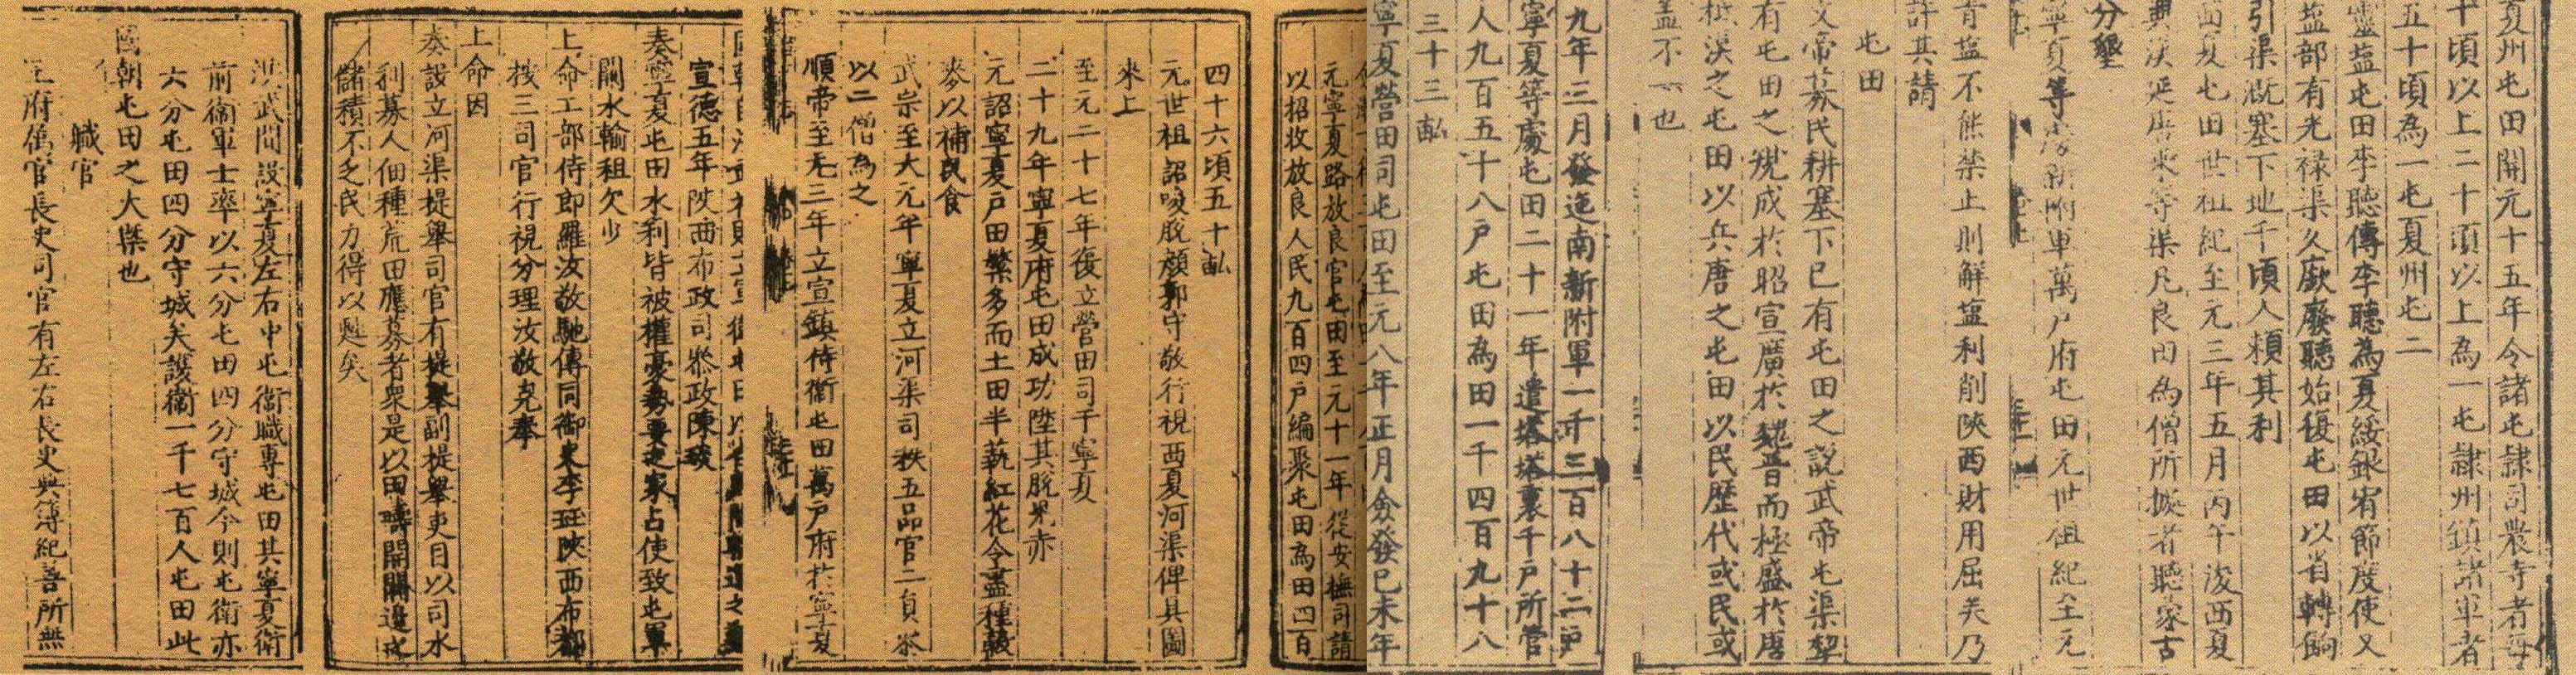 夏州屯田開元十五年令諸屯隸司農寺者每
十頃以上二十頃以上為一屯隸州鎮諸軍者
五十頃為一屯夏州屯二
靈鹽屯田李聽傳李聽為夏綏銀宥節度使又
鹽部有光祿渠久廞廢聽始復屯田以省轉餉
引渠溉塞下地千頃人賴其利
西夏屯田世祖紀至元三年五月丙午浚西夏
漢延唐來等渠凡良田為僧所據者聽蒙古
分墾
寧夏等處新附軍萬戶府屯田元世祖紀至元
青鹽不能禁止則解鹽利削陝西財用屈矣乃
許其請
屯田
文帝募民耕塞下已有屯田之説武帝屯渠犂
有屯田之規成於昭宣廣於魏晋而極盛於唐
漢之屯田以兵唐之屯田以民歷代或民或
蓋不一也
九年三月發迤南新附軍一千三百八十二戶
寧夏等處屯田二十一年遣塔塔裏千戶所管
人九百五十八戶屯田為田一千四百九十八
三十三畝
寧夏營田司屯田至元八年正月僉發己未年
元寧夏路放良官屯田至元十一年從安撫司請
以招收放良人民九百四戶編聚屯田為田四百
四十六頃五十畝
元世祖詔唆脫顏郭守敬行視西夏河渠俾具圖
來上
至元二十七年復立營田司于寧夏
二十九年寧夏府屯田成功陞其脫兒赤
元詔寧夏戶田繁多而土田半蓺紅花令盡種穀
麥以補民食
武宗至大元年寧夏立河渠司秩五品官二員叅
以二僧為之
順帝至元三年立宣鎮侍衛屯田萬戶府於寧夏
宣德五年陝西布政司叅政陳琰
奏寧夏屯田水利皆被權豪勢要之家占使致屯軍
關水輸租欠少
上命工部侍郎羅汝敬馳傳同御史李珏陝西布都
按三司官行視分理汝敬克奉
上命因
奏設立河渠提舉司官有提舉副提舉吏目以司水
利募人佃種荒田應募者衆是以田疇開闢邊戍
儲積不乏民力得以甦矣
洪武間設寧夏左右中屯衛職專屯田其寧夏衛
前衛軍士率以六分屯田四分守城今則屯衛亦
六分屯田四分守城矣護衛一千七百人屯田此
國朝屯田之大槩也
職官
王府舊官長史司官有左右長史典簿紀善所無